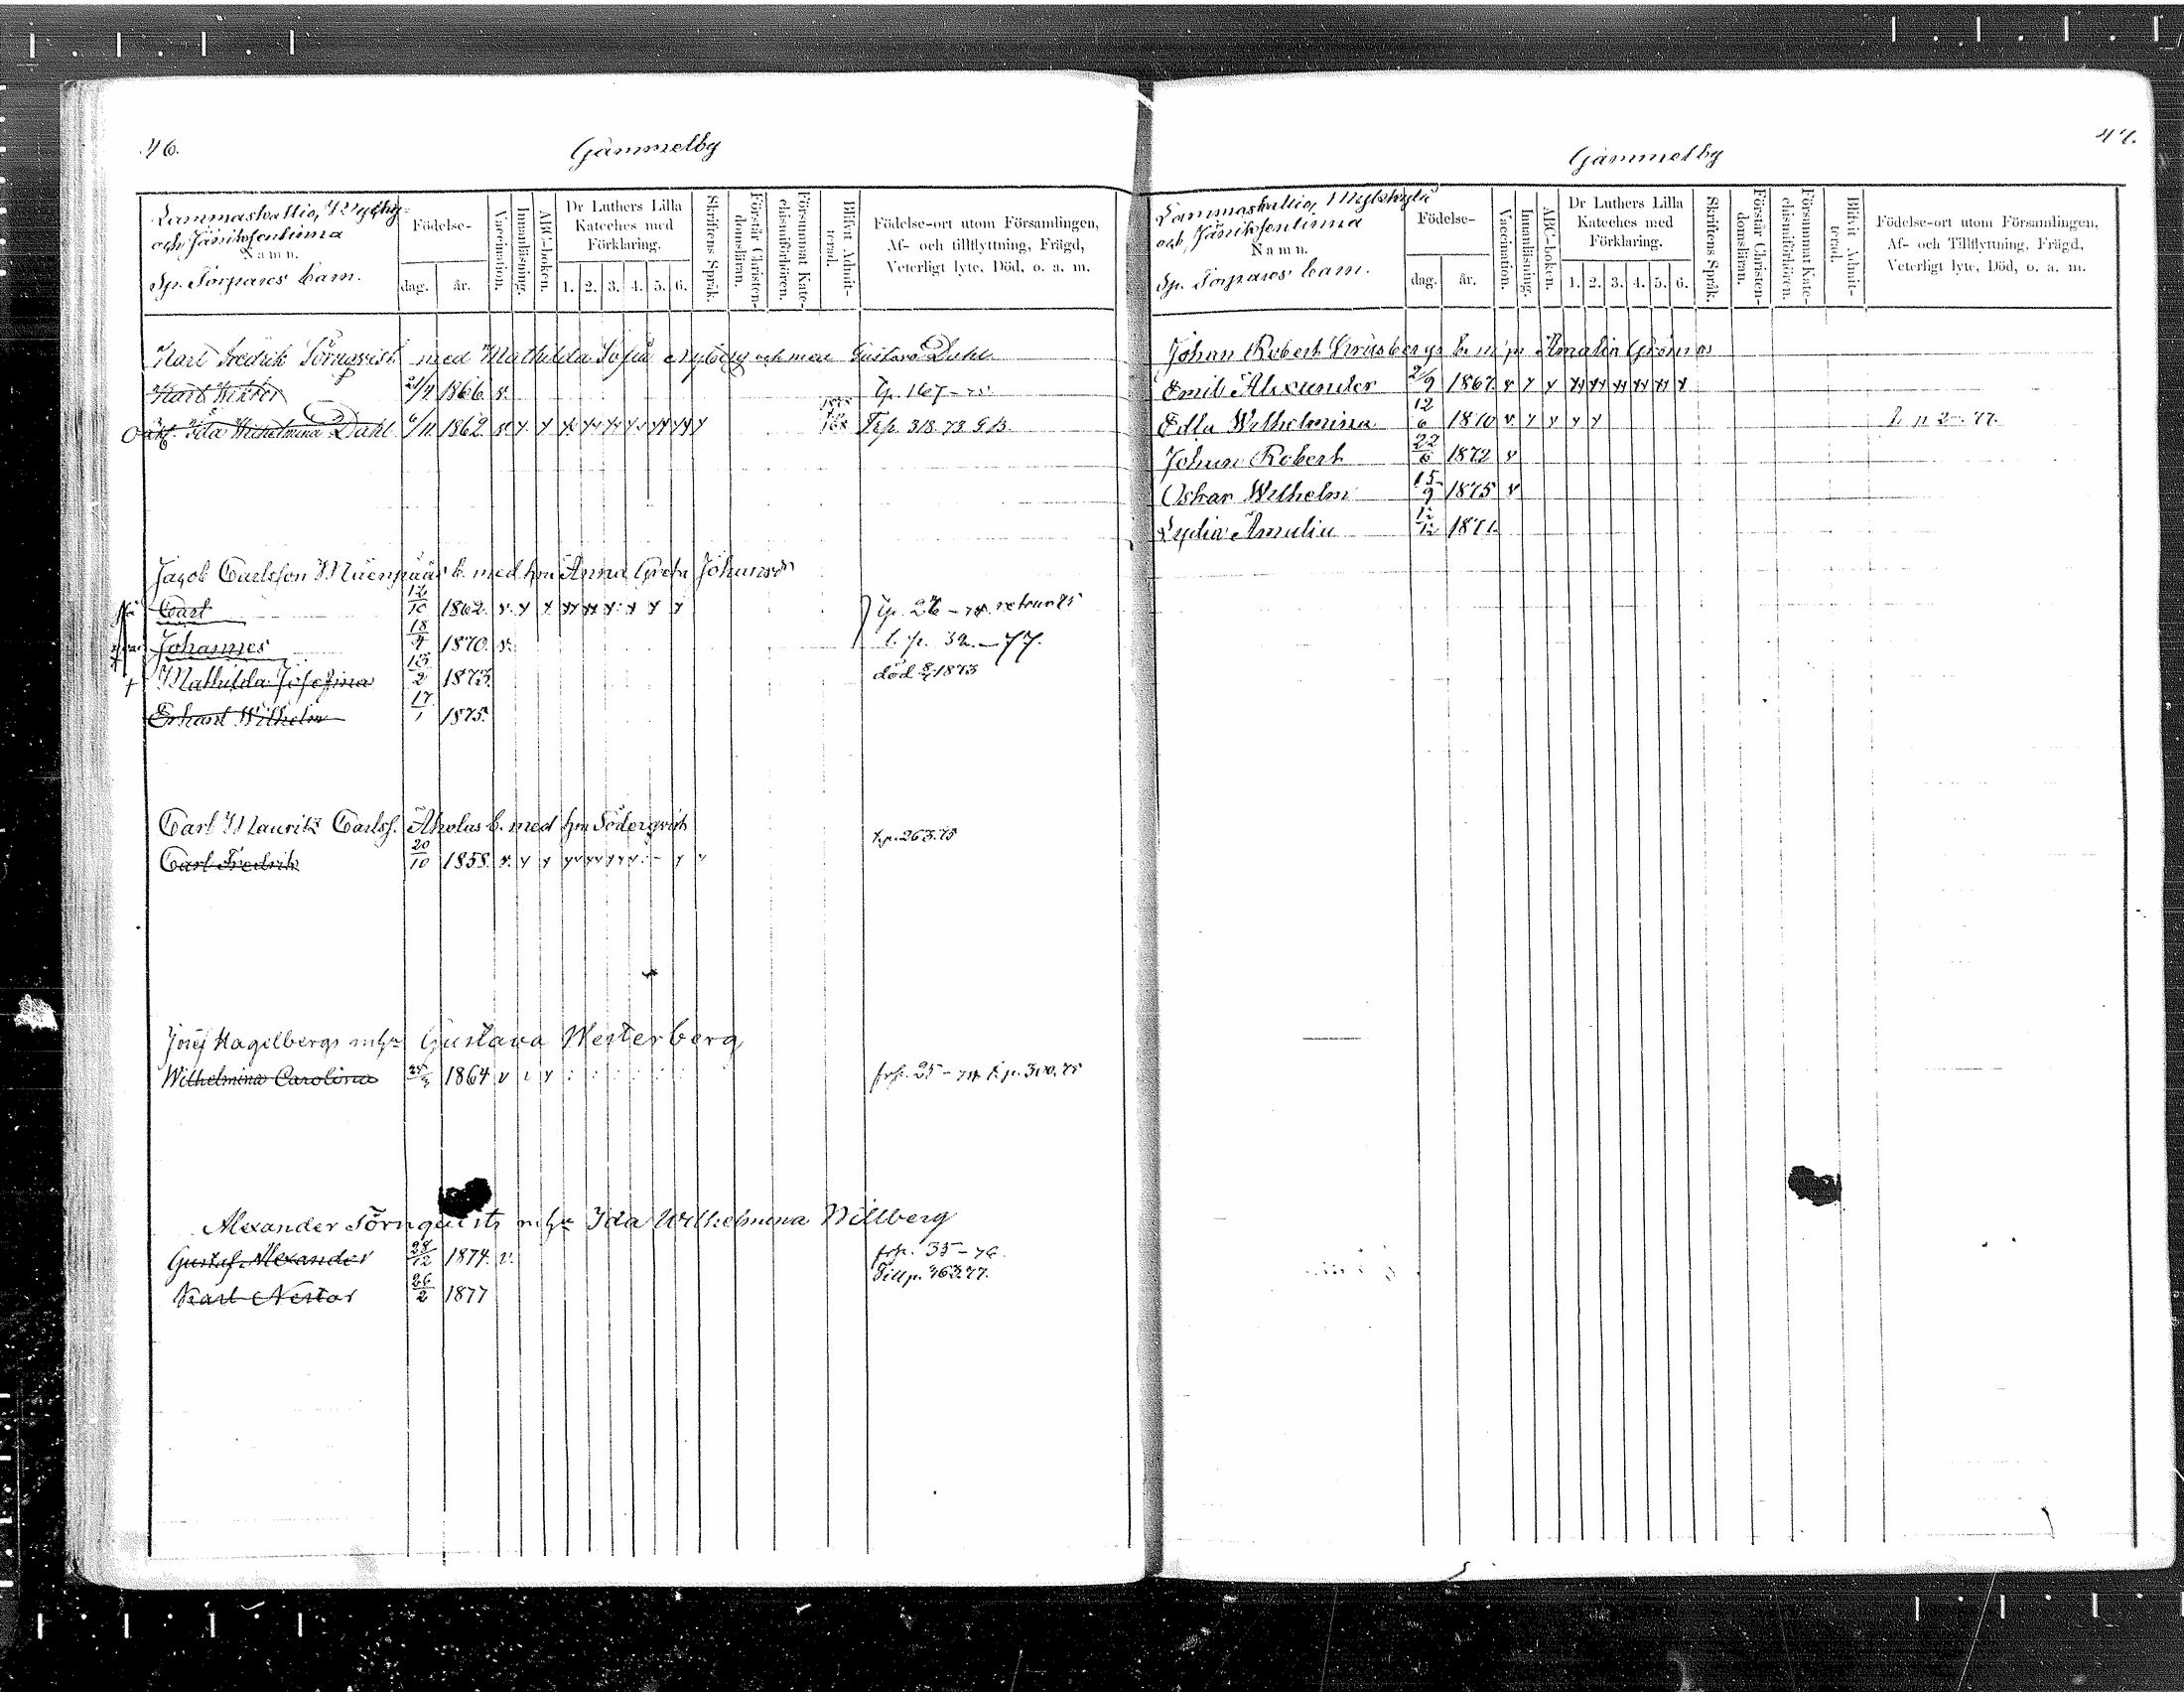 46.
Gammelby
Lammaskallio, Myllky-
och Jäniksenlinna
Namn.
Sp. Torpares barn.
Födelse-
dag.
år.
Vaccination.
Innanläsning.
ABC-boken.
Dr Luthers Lilla
Kateches med
Förklaring.
1. 2. 3. 4. 5. 6.
Skriftens Språk.
Förstår Christen-
domsläran.
Försummat Kate-
chismiförhören.
Blifvit Admit-
terad.
Födelse-ort utom Församlingen,
Af- och tillflyttning, Frägd,
Veterligt lyte, Död, o. a. m.
Karl Fredrik Törnqvist med Mathilda Sofia Nyberg och med Gustava Dahl
Karl Wiktor 21/4 1866 v. Tp. 167-75
Oäkt. Ida Wilhelmina Dahl 6/11 1862 v. Frp. 318. 73
Jacob Carlsson Mäenpääs b. med hu Anna Greta Johansdr
Carl 12/10 1862. v. Tp. 26-74. retour 75
Johannes 18/4 1870. v. t. p. 32.-77.
Mathilda Josefina 13/2 1873. död 1873
Erland Wilhelm 17/1 1875.
Carl Mauritz Carlss. Aholas b. med hu Söderqvist
Carl Fredrik 20/10 1858. v. t.p. 263.75
Josef Hagelbergs m hu Gustava Westerberg
Wilhelmina Carolina 1864 v frp. 25-74 t.p. 300.75
Alexander Törnquists m hu Ida Wilhelmina Willberg
Gustaf Alexander 28/12 1874. v. frp. 35-76.
Karl Nestor 26/2 1877 Till p. 463.77.
47.
Gammelby
Lammaskallio, Myllykylä
och Jäniksenlinna
Namn.
Sp. Torpares barn.
Födelse-
dag.
år.
Vaccination.
Innanläsning.
ABC-boken.
Dr Luthers Lilla
Kateches med
Förklaring.
1. 2. 3. 4. 5. 6.
Skriftens Språk.
Förstår Christen-
domsläran.
Försummat Kate-
chismiförhören.
Blifvit Admit-
terad.
Födelse-ort utom Församlingen,
Af- och Tillflyttning, Frägd,
Veterligt lyte, Död, o. a. m.
Johan Robert b. m hu Amalia Grönroos
Emil Alexander 21/9 1867 v
Edla Wilhelmina 12/6 1870 v. 77.
Johan Robert 22/6 1872 v
Oskar Wilhelm 15/9 1875 v
Lydia Amalia 12/12 1877.